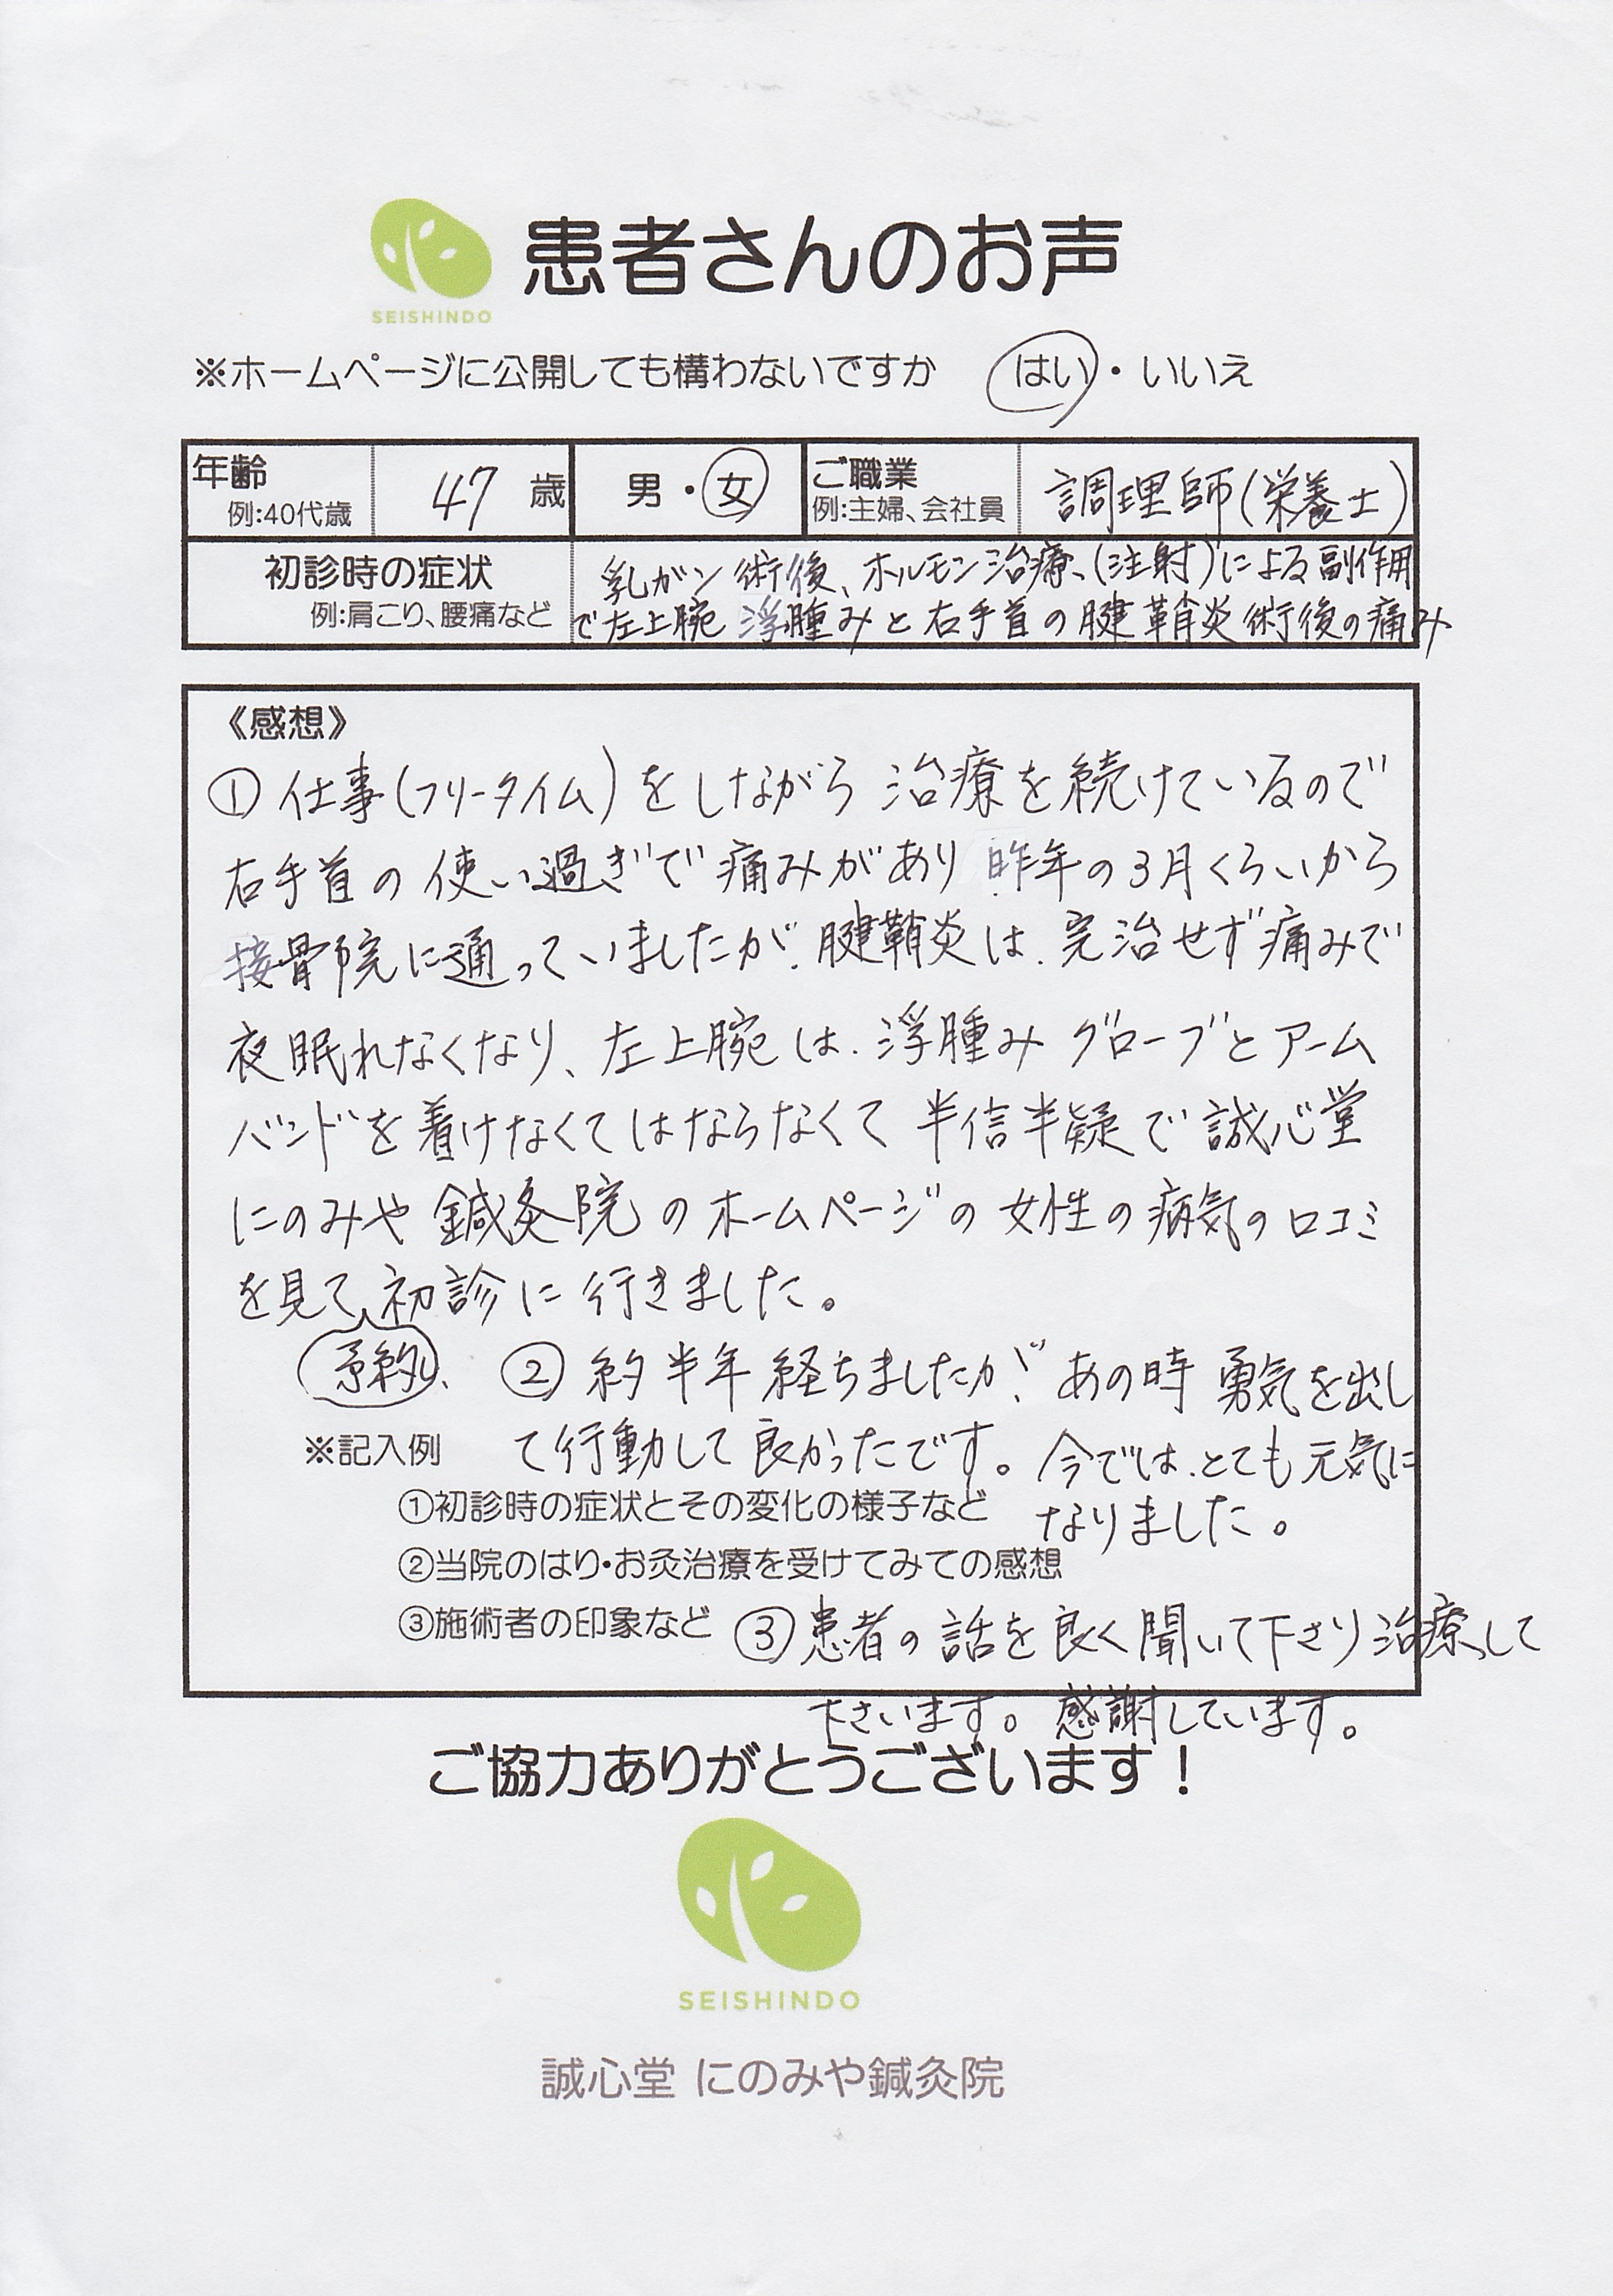 SEISHINDO
患者さんのお声
※ホームページに公開しても構わないですか はい・いいえ
年齢
例:40代歳
47 歳
男・女
ご職業
例:主婦、会社員
調理師(栄養士)
初診時の症状
例:肩こり、腰痛など
乳ガン術後、ホルモン治療、(注射)による副作用
で左上腕浮腫みと右手首の腱鞘炎術後の痛み
《感想》
①仕事(フリータイム)をしながら治療を続けているので
右手首の使い過ぎで痛みがあり昨年の3月くらいから
接骨院に通っていましたが、腱鞘炎は、完治せず痛みで
夜眠れなくなり、左上腕は、浮腫みグローブとアーム
バンドを着けなくてはならなくて半信半疑で誠心堂
にのみや鍼灸院のホームページの女性の病気の口コミ
を見て初診に行きました。
予約し、
②約半年経ちましたが、あの時勇気を出し
て行動して良かったです。今では、とても元気に
なりました。
※記入例
①初診時の症状とその変化の様子など
②当院のはり・お灸治療を受けてみての感想
③施術者の印象など
③患者の話を良く聞いて下さり治療して
下さいます。感謝しています。
ご協力ありがとうございます!
SEISHINDO
誠心堂 にのみや鍼灸院